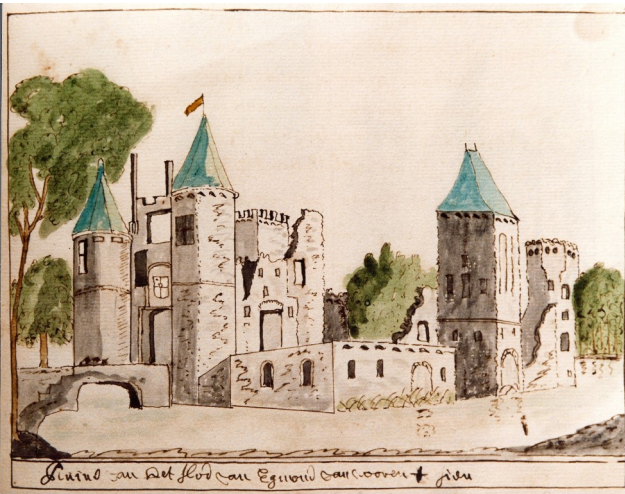 Ruins van Het slod van Egmond van vooren te zien